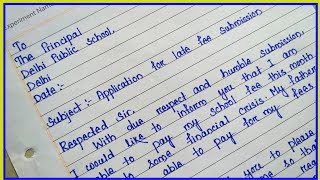 xperiment Nam
To
The Principal
Delhi Public school.
Delhi
Date:-
Subject:- Application for late fee submission
Respected Sir,
With due respect and humble submission,
I would like to inform you that I am
able to pay my school fee this month
some financial crisis. My father
able to pay for my fees
you to please
so that